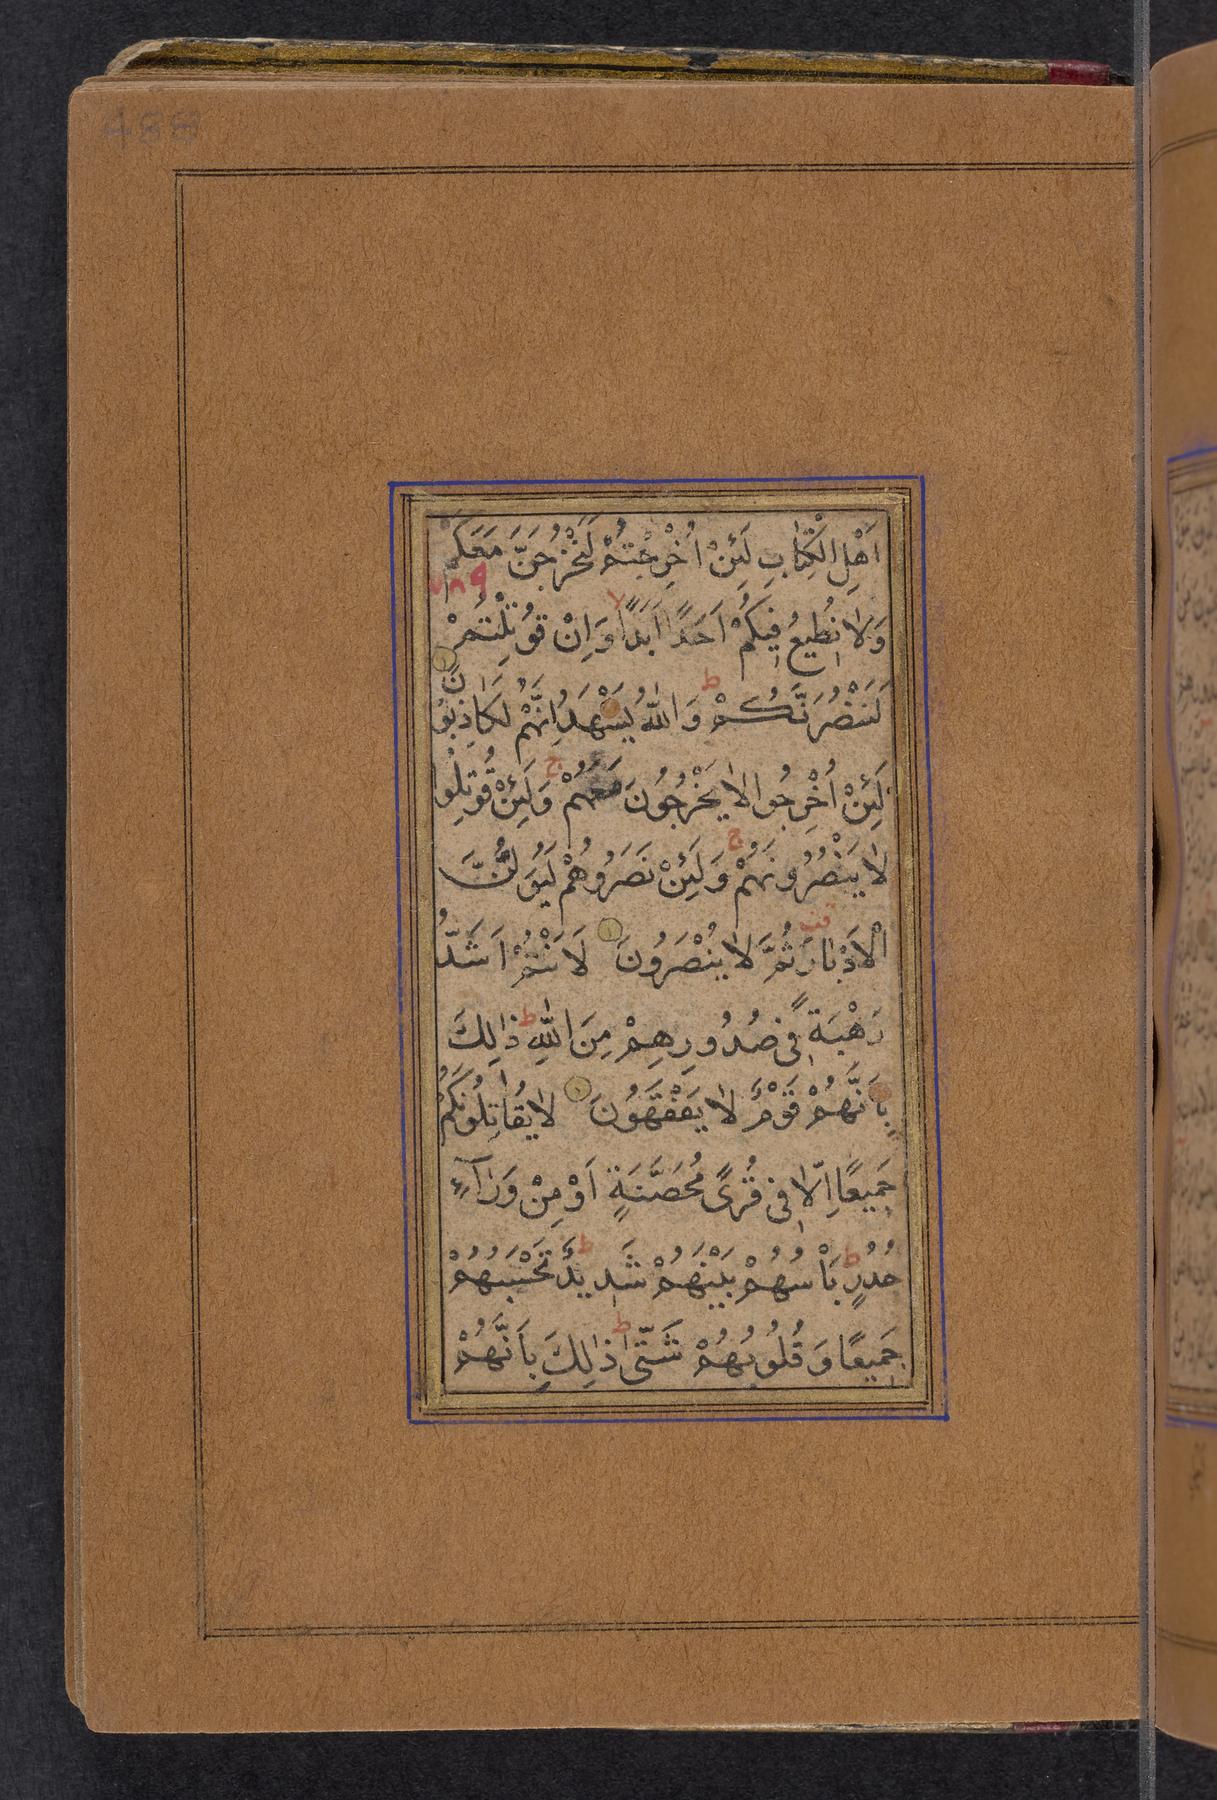 488
اَهْلِ الْكِتَابِ لَئِنْ اُخْرِجْتُمْ لَنَخْرُجَنَّ مَعَكُمْ
وَلَا نُطِيعُ فِيكُمْ اَحَدًا اَبَدًا لا وَاِنْ قُوتِلْتُمْ
لَنَنْصُرَنَّكُمْ ط وَاللّٰهُ يَشْهَدُ اِنَّهُمْ لَكَاذِبُونَ
لَئِنْ اُخْرِجُوا لَا يَخْرُجُونَ مَعَهُمْ ج وَلَئِنْ قُوتِلُوا
لَا يَنْصُرُونَهُمْ ج وَلَئِنْ نَصَرُوهُمْ لَيُوَلُّنَّ
الْاَدْبَارَ قف ثُمَّ لَا يُنْصَرُونَ لَاَنْتُمْ اَشَدُّ
رَهْبَةً فِى صُدُورِهِمْ مِنَ اللّٰهِ ط ذٰلِكَ
بِاَنَّهُمْ قَوْمٌ لَا يَفْقَهُونَ لَا يُقَاتِلُونَكُمْ
جَمِيعًا اِلَّا فِى قُرًى مُحَصَّنَةٍ اَوْ مِنْ وَرَآءِ
جُدُرٍ ط بَاْسُهُمْ بَيْنَهُمْ شَدِيدٌ ط تَحْسَبُهُمْ
جَمِيعًا وَقُلُوبُهُمْ شَتّٰى ط ذٰلِكَ بِاَنَّهُمْ